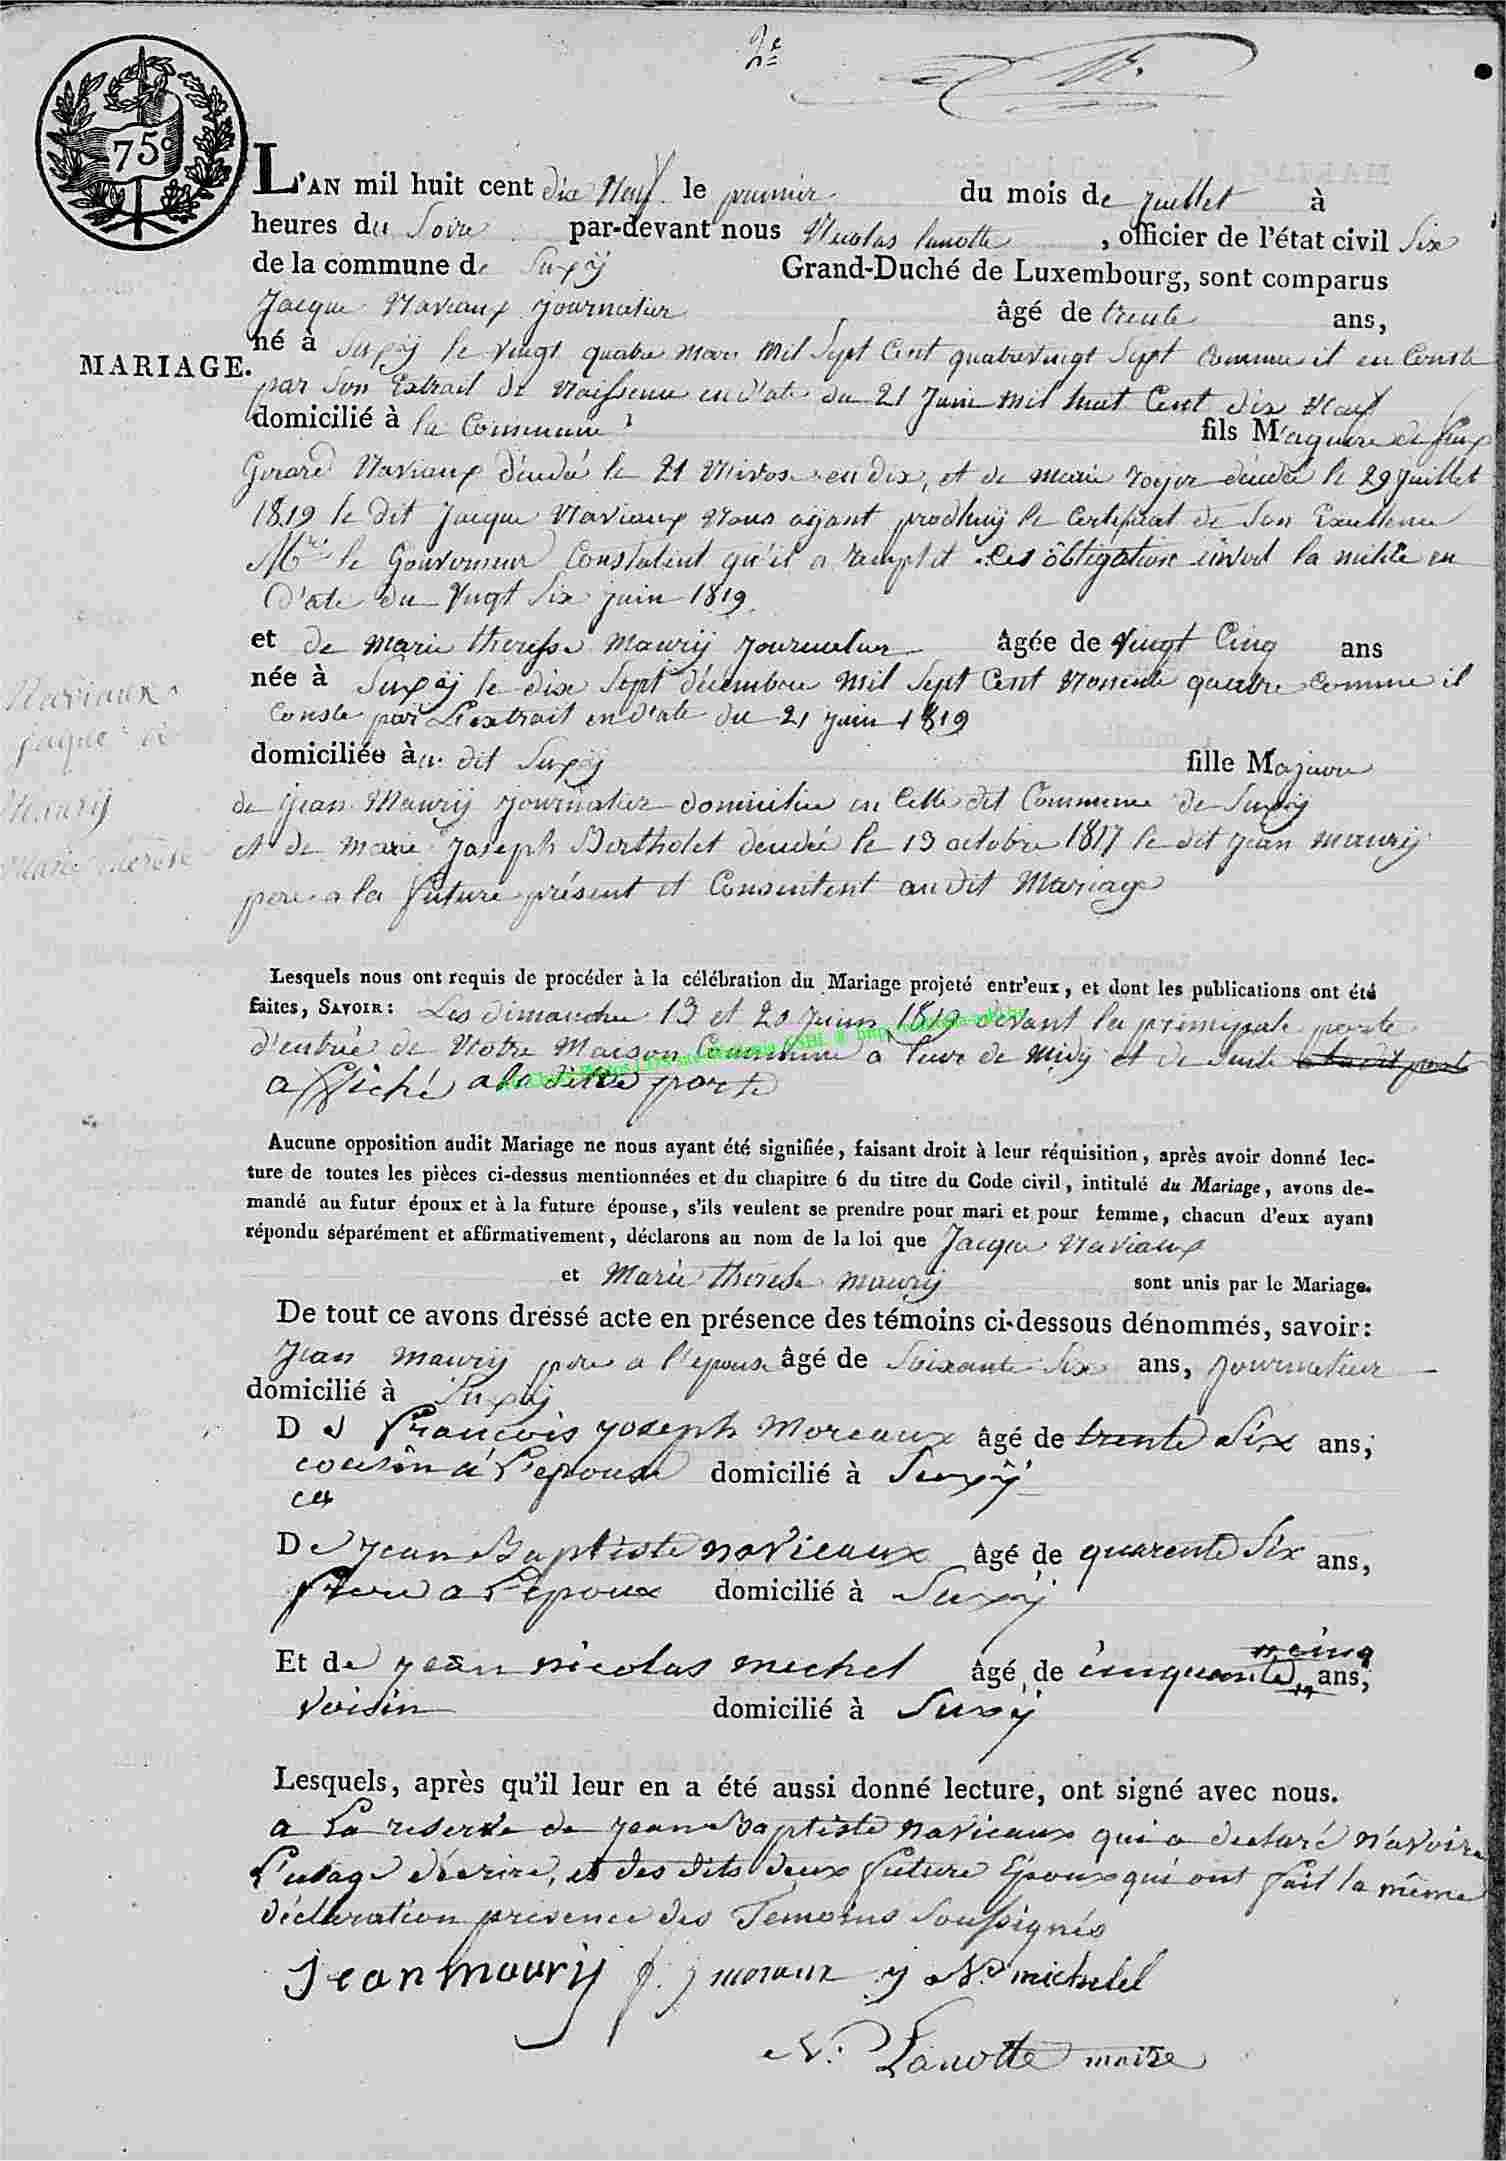 2e
75c
L'AN mil huit cent dix Neuf le premier du mois de juillet à
heures du Soire par-devant nous Nicolas lanotte, officier de l'état civil Six
de la commune de Suxÿ Grand-Duché de Luxembourg, sont comparus
Jacque Naviaux journalier âgé de trente ans,
MARIAGE.
né à Suxÿ le vingt quatre mars Mil Sept Cent quatrevingt Sept comme il en Conste
par Son Extrait de Naissence en d'ate du 21 Juin mil huit Cent dix Neuf
domicilié à la Commune fils M'ageure de feux
Gerard Naviaux décédé le 21 Nivose en dix, et de marie décédée le 29 juillet
1819 le dit Jacque Naviaux Nous ayant prodhuij le Certificat de Son Exellence
Mr. le Gouverneur Constatent qu'il a remplit Ces ôbligations la milite en
D'ate du Vingt Six juin 1819
et de Marie theresse Maurij journalier âgée de vingt Cinq ans
née à Suxÿ le dix Sept décembre Mil Sept Cent Nonente quatre comme il
Conste par L'extrait en d'ate du 21 juin 1819
domiciliée au dit Suxÿ fille Majeure
Naviaux
jaque et
Maurij
Marie therese
de Jean Maurij journalier domicilie en Celle dit Commune de Suxÿ
et de Marie Joseph Bertholet décédée le 13 octobre 1817 le dit Jean maurij
pere a la future présent et Consentent au dit Mariage
Lesquels nous ont requis de procéder à la célébration du Mariage projeté entr'eux, et dont les publications ont été
faites, SAVOIR: Les dimanche 13 et 20 juin 1819 devant la principale porte
d'entrée de Notre Maison Commune a leure de Midy et de suite
affiché a la ditte porte
Aucune opposition audit Mariage ne nous ayant été signifiée, faisant droit à leur réquisition, après avoir donné lec-
ture de toutes les pièces ci-dessus mentionnées et du chapitre 6 du titre du Code civil, intitulé du Mariage, avons de-
mandé au futur époux et à la future épouse, s'ils veulent se prendre pour mari et pour femme, chacun d'eux ayant
répondu séparément et affirmativement, déclarons au nom de la loi que Jacque Naviaux
et Marie therese maurij sont unis par le Mariage.
De tout ce avons dressé acte en présence des témoins ci-dessous dénommés, savoir:
Jean maurij pere a l'epouse âgé de Soixante Six ans, journalier
domicilié à Suxÿ
De François joseph Moreaux âgé de trente Six ans,
cousin a L'epouse domicilié à Suxÿ
De jean Baptiste navieaux âgé de quarente Six ans,
frere a L'epoux domicilié à Suxÿ
Et de jean nicolas michel âgé de cinquante ans,
voisin domicilié à Suxÿ
Lesquels, après qu'il leur en a été aussi donné lecture, ont signé avec nous.
a La reserve de jean Baptiste navieaux qui a declaré n'avoire
L'usage d'ecrire, et des dits deux future Epoux qui ont fait la même
déclaration presence des Temoins soussignés
jean maurij f. j moraux j N. michel
N. Lanotte maire